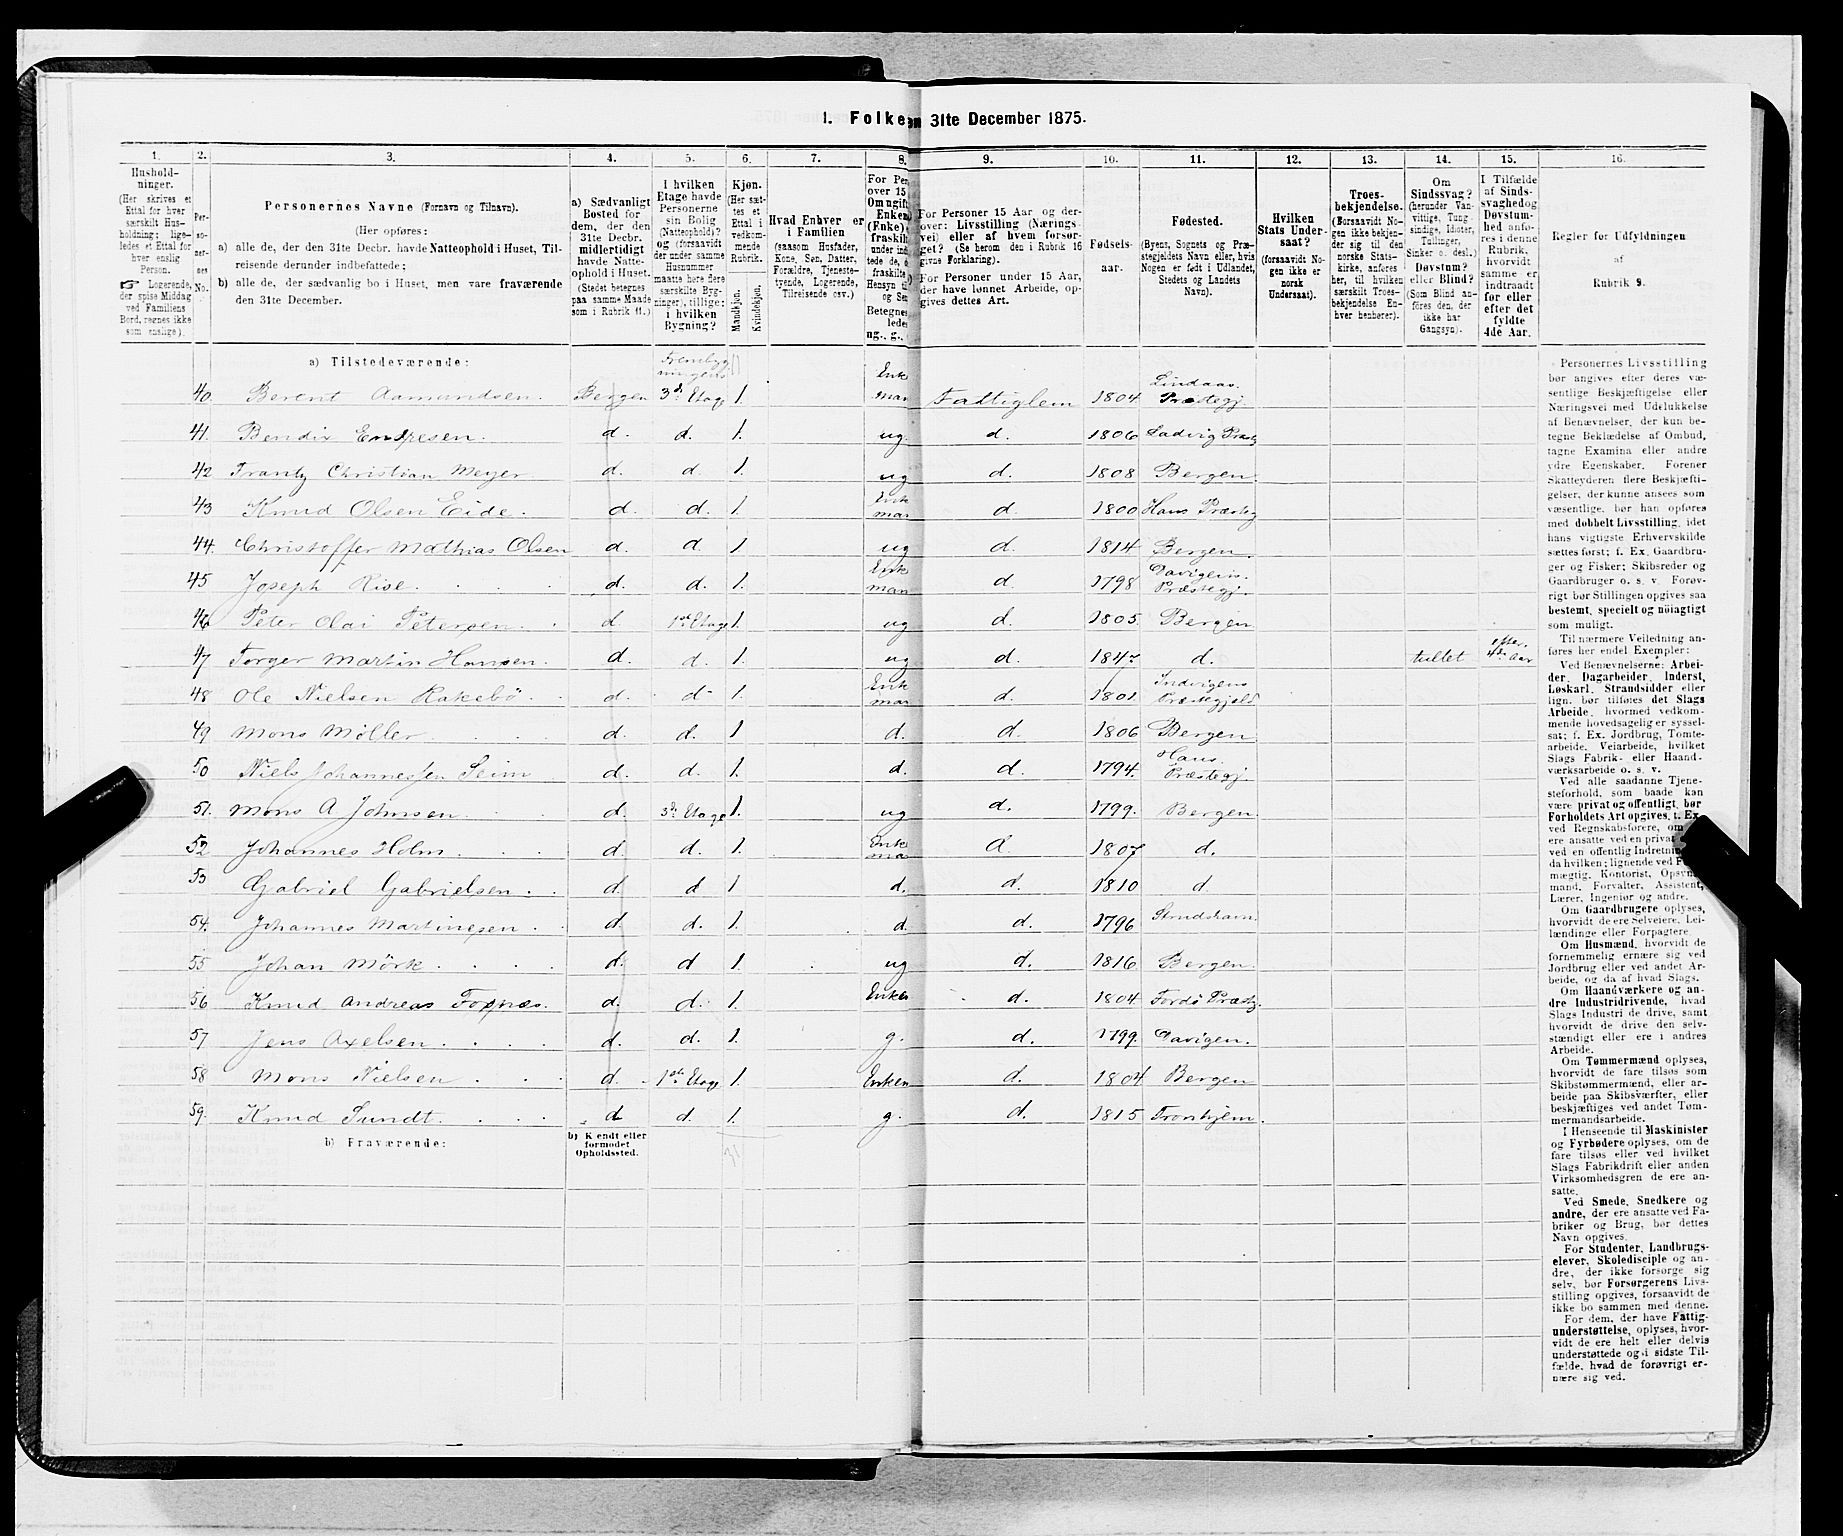 1. Folke
m 31te December 1875.
1. 2. 3. 4. 5. 6. 7. 8. 9. 10. 11. 12. 13. 14. 15. 16.
Hushold-
ninger.
(Her skrives et
Ettal for hver
særskilt Hus-
holdning; lige-
ledes et Ettal for
hver enslig
Person.
☞ Logerende,
der spise Middag
ved Familiens
Bord, regnes ikke
som enslige).
Per-
so-
ner-
nes
No.
Personernes Navne (Fornavn og Tilnavn).
(Her opføres:
a) alle de, der den 31te Decbr. havde Natteophold i Huset, Til-
reisende derunder indbefattede;
b) alle de, der sædvanlig bo i Huset, men vare fraværende
den 31te December.
a) Sædvanligt
Bosted for
dem, der den
31te Decbr.
midlertidigt
havde Natte-
ophold i Huset.
(Stedet betegnes
paa samme Maade
som i Rubrik 11.)
I hvilken
Etage havde
Personerne
sin Bolig
(Natteophold)?
og (forsaavidt
der under samme
Husnummer
maatte høre flere
særskilte Byg-
ninger), tillige:
i hvilken
Bygning?
Kjøn.
(Her sæt-
tes et
Ettal i
vedkom-
mende
Rubrik.
Mandkjøn.
Kvindekjøn.
Hvad Enhver er
i Familien
(saasom Husfader,
Kone, Søn, Datter,
Forældre, Tjeneste-
tyende, Logerende,
Tilreisende osv.)
For Per
over 15
Om ugift
Enken
(Enke)
fraskilt
under ind
tede de,
fraskilte
Hensyn til
og Se
Betegnes
ledes
ng., g.,
For Personer 15 Aar og der-
over: Livsstilling (Nærings-
vei) eller af hvem forsør-
get? (Se herom den i Rubrik 16
givne Forklaring).
For Personer under 15 Aar,
der have lønnet Arbeide, op-
gives dettes Art.
Fødsels-
aar.
Fødested.
(Byens, Sognets og Præ-
stegjeldets Navn eller, hvis
Nogen er født i Udlandet,
Stedets og Landets
Navn).
Hvilken
Stats Under-
saat?
(forsaavidt No-
gen ikke er
norsk
Undersaat).
Troes-
bekjendelse.
(Forsaavidt No-
gen ikke bekjen-
der sig til den
norske Stats-
kirke, anføres
her, til hvilken
særskilt Troes-
bekjendelse En-
hver henhører).
Om
Sindssvag?
(herunder Van-
vittige, Tung-
sindige, Idioter,
Tullinger,
Sinker o. desl.)
Døvstum?
eller Blind?
(Som Blind an-
føres den, der
ikke har
Gangsyn).
I Tilfælde
af Sinds-
svaghed og
Døvstum-
hed anfø-
res i denne
Rubrik,
hvorvidt
samme er
indtraadt
før eller
efter det
fyldte
4de Aar.
Regler for Udfyldningen
af
Rubrik 9.
a) Tilstedeværende:
40. Berent Aamundsen. Bergen 3d. Etage 1. Enk man Fattiglem 1804 Lindaas Præstegj.
41. Bendix d. d. 1. ug. d. 1806 Ladvig Præstg
42 Frantz Christian Meyer d. d. 1. ug d. 1808 Bergen.
43 Knud Olsen Eide. d. d. 1. Enk man d. 1800 Haus Præsteg
44. Christoffer Mathias Olsen d. d. 1. ug d. 1814 Bergen.
45 Joseph Rise. d. d. 1. Enk man d. 1798 Davigens Præstegj.
46 Peter Olai Petersen d. 1ste Etage 1. ug d. 1805. Bergen
47 Torger Martin Hansen. d. d. 1. ug d. 1847 d. tullet efter 4de Aar
48 Ole Nielsen Rakebö. d. d. 1. Enk man d. 1801. Indvigens Præstegjeld
49 Mons Möller d. d. 1. d. d. 1806 Bergen
50 Niels Johannessen Seim d. d. 1. d. d. 1794. Haus. Præstegj.
51. Mons A Johnsen d. 3d. Etage 1. ug d. 1799. Bergen
52 Johannes Holm d. d. 1. Enk ma d. 1807 d.
53 Gabriel Gabrielsen d. d 1 d. d. 1810 d.
54. Johannes Martinesen d. d. 1. d. d. 1796 Strudshavn
55 Johan Mörk d. d 1. ug d. 1816 Bergen.
56 Knud Andreas d. d. 1. Enken d. 1804. Fordö Præstg.
57 Jens Axelsen d. d. 1. g. d. 1799. Davigen.
58 Mons Nielsen d. 1ste Etage 1. Enken d. 1804 Bergen
59. Knud Sundt d d. 1. g. d. 1815 Tronhjem.
b) Fraværende:
b) Kjendt eller
formodet
Opholdssted.
Personernes Livsstilling
bør angives efter deres væ-
sentlige Beskjæftigelse eller
Næringsvei med Udelukkelse
af Benævnelser, der kun be-
tegne Beklædelse af Ombud,
tagne Examina eller andre
ydre Egenskaber. Forener
Skatteyderen flere Beskjæfti-
gelser, der kunne ansees som
væsentlige, bør han opføres
med dobbelt Livsstilling, idet
hans vigtigste Erhvervskilde
sættes først; f. Ex. Gaardbru-
ger og Fisker; Skibsreder og
Gaardbruger o. s. v. Forøv-
rigt bør Stillingen opgives saa
bestemt, specielt og nöiagtigt
som muligt.
Til nærmere Veiledning an-
føres her endel Exempler:
Ved Benævnelserne: Arbei-
der, Dagarbeider, Inderst,
Løskarl, Strandsidder eller
lign. bør tilføres det Slags
Arbeide, hvormed vedkom-
mende hovedsagelig er syssel-
sat; f. Ex. Jordbrug, Tomte-
arbeide, Veiarbeide, hvilket
Slags Fabrik- eller Haand-
værksarbeide o. s. v.
Ved alle saadanne Tjene-
steforhold, som baade kan
være privat og offentligt, bør
Forholdets Art opgives, t. Ex.
ved Regnskabsførere, om
ere ansatte ved en privat
ved en offentlig Indretnin
da hvilken; lignende ved F
mægtig, Kontorist, Opsyn
mand, Forvalter, Assistent,
Lærer, Ingeniør og andre.
Om Gaardbrugere oplyses,
hvorvidt de ere Selveiere, Lei-
lændinge eller Forpagtere.
Om Husmænd, hvorvidt de
fornemmelig ernære sig ved
Jordbrug eller ved andet Ar-
beide, og da af hvad Slags.
Om Haandværkere og an-
dre Industridrivende, hvad
Slags Industri de drive, samt
hvorvidt de drive den selv-
stændigt eller ere i andres
Arbeide.
Om Tømmermænd oplyses,
hvorvidt de fare tilsøs som
Skibstømmermænd, eller ar-
beide paa Skibsværfter, eller
beskjæftiges ved andet Tøm-
mermandsarbeide.
I Henseende til Maskinister
og Fyrbødere oplyses, om de
fare tilsøs eller ved hvilket
Slags Fabrikdrift eller anden
Virksomhedsgren de ere an-
satte.
Ved Smede, Snedkere og
andre, der ere ansatte ved Fa-
briker og Brug, bør dettes
Navn opgives.
For Studenter, Landbrugs-
elever, Skoledisciple og an-
dre, der ikke forsørge sig
selv, bør Forsørgerens Livs-
stilling opgives, forsaavidt de
ikke bo sammen med denne.
For dem, der have Fattig-
understøttelse, oplyses, hvor-
vidt de ere helt eller delvis
understøttede og i sidste Til-
fælde, hvad de forøvrigt er-
nære sig ved.